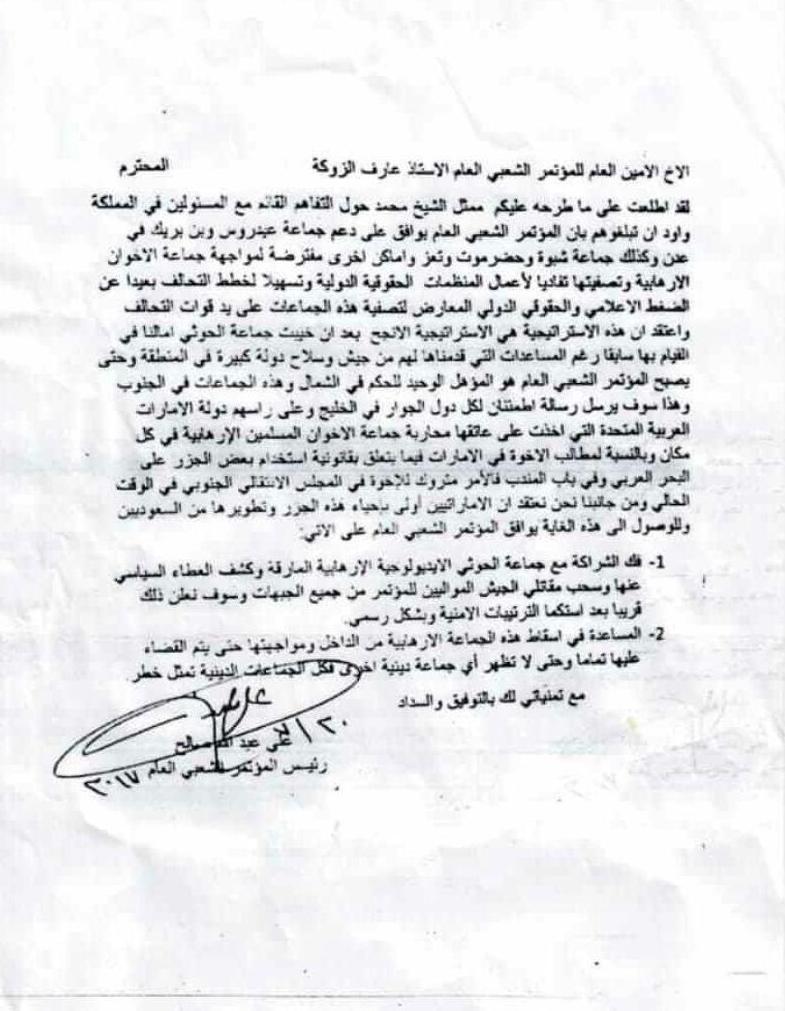 الاخ الامين العام للمؤتمر الشعبي العام الاستاذ عارف الزوكة المحترم
لقد اطلعت على ما طرحه عليكم ممثل الشيخ محمد حول التفاهم القائم مع المسئولين في المملكة
واود ان تبلغوهم بان المؤتمر الشعبي العام يوافق على دعم جماعة عيدروس وبن بريك في
عدن وكذلك جماعة شبوة وحضرموت وتعز واماكن اخرى مفترضة لمواجهة جماعة الاخوان
الارهابية وتصفيتها تفاديا لأعمال المنظمات الحقوقية الدولية وتسهيلا لخطط التحالف بعيدا عن
الضغط الاعلامي والحقوقي الدولي المعارض لتصفية هذه الجماعات على يد قوات التحالف
واعتقد ان هذه الاستراتيجية هي الاستراتيجية الانجح بعد ان خيبت جماعة الحوثي امالنا في
القيام بها سابقا رغم المساعدات التي قدمناها لهم من جيش وسلاح دولة كبيرة في المنطقة وحتى
يصبح المؤتمر الشعبي العام هو المؤهل الوحيد للحكم في الشمال وهذه الجماعات في الجنوب
وهذا سوف يرسل رسالة اطمئنان لكل دول الجوار في الخليج وعلى راسهم دولة الامارات
العربية المتحدة التي اخذت على عاتقها محاربة جماعة الاخوان المسلمين الإرهابية في كل
مكان وبالنسبة لمطالب الاخوة في الامارات فيما يتعلق بقانونية استخدام بعض الجزر على
البحر العربي وفي باب المندب فالأمر متروك للإخوة في المجلس الانتقالي الجنوبي في الوقت
الحالي ومن جانبنا نحن نعتقد ان الاماراتيين أولى بإحياء هذه الجزر وتطويرها من السعوديين
وللوصول الى هذه الغاية يوافق المؤتمر الشعبي العام على الاتي:
1- فك الشراكة مع جماعة الحوثي الايديولوجية الإرهابية المارقة وكشف الغطاء السياسي
عنها وسحب مقاتلي الجيش الموالیین للمؤتمر من جميع الجبهات وسوف نعلن ذلك
قريبا بعد استكما الترتيبات الامنية وبشكل رسمي.
2- المساعدة في اسقاط هذه الجماعة الارهابية من الداخل ومواجهتها حتى يتم القضاء
عليها تماما وحتى لا تظهر أي جماعة دينية اخرى فكل الجماعات الدينية تمثل خطر.
مع تمنياتي لك بالتوفيق والسداد
علي عبد الله صالح
رئيس المؤتمر الشعبي العام ٢٠١٧